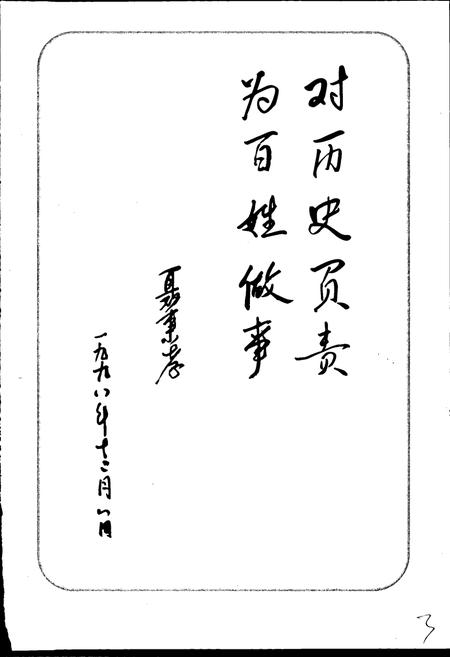 对历史负责
为百姓做事
一九九八年十二月八日
3